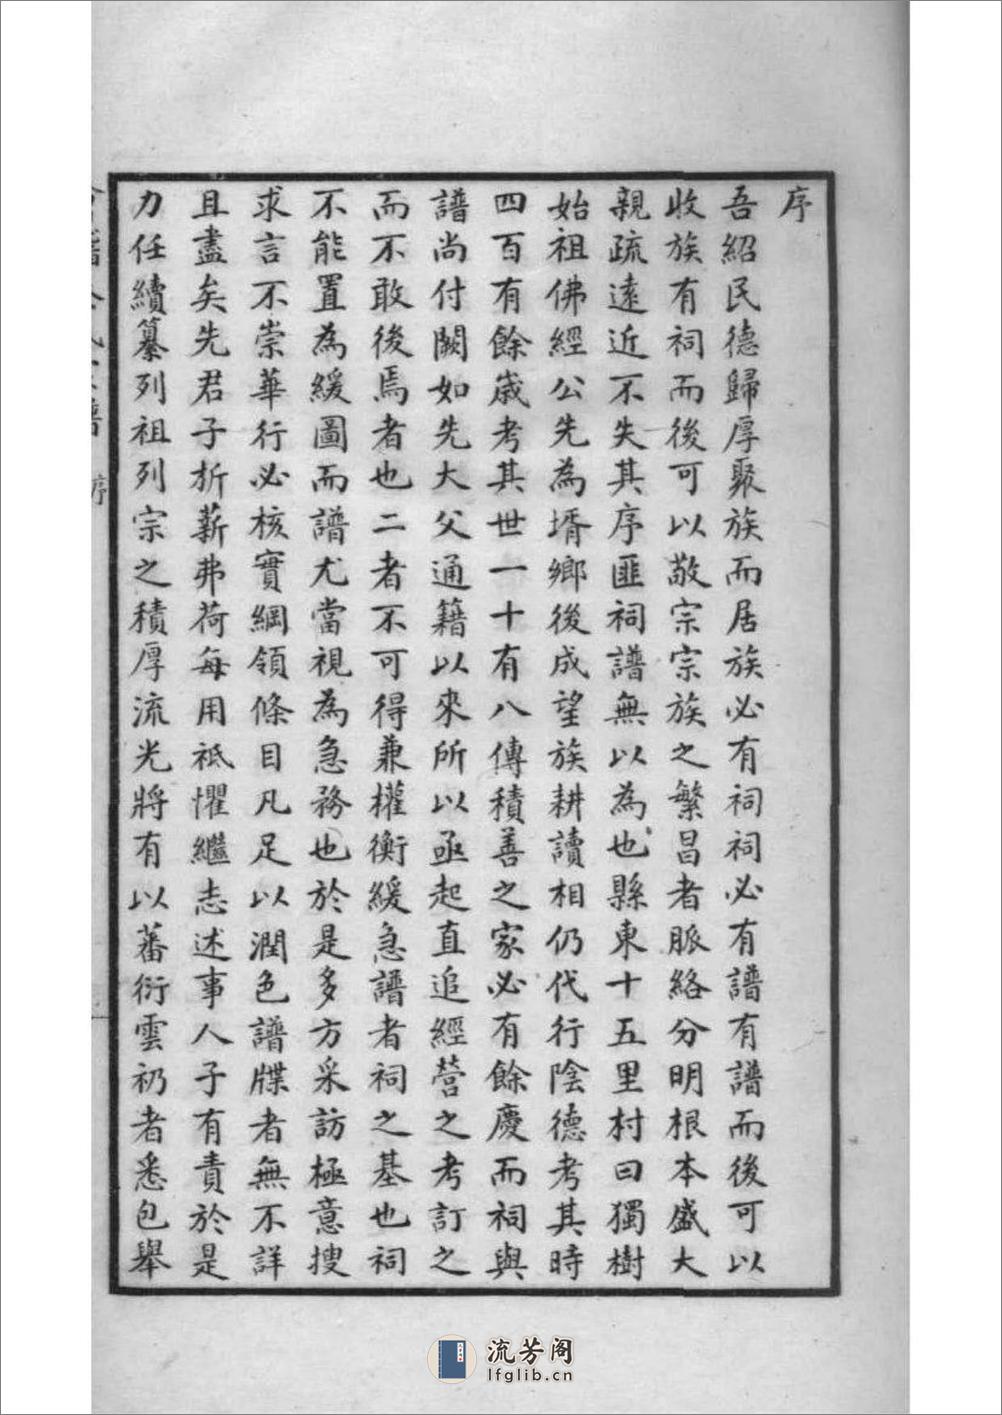 序
吾紹民德歸厚聚族而居族必有祠祠必有譜有譜而後可以
收族有祠而後可以敬宗宗族之繁昌者脈絡分明根本盛大
親疏遠近不失其序匪祠譜無以為也縣東十五里村曰獨樹
始祖佛經公先為壻鄉後成望族耕讀相仍代行陰德考其時
四百有餘歲考其世一十有八傳積善之家必有餘慶而祠與
譜尚付闕如先大父通籍以來所以亟起直追經營之考訂之
而不敢後焉者也二者不可得兼權衡緩急譜者祠之基也祠
不能置為緩圖而譜尤當視為急務也於是多方采訪極意搜
求言不崇華行必核實綱領條目凡足以潤色譜牒者無不詳
且盡矣先君子析薪弗荷每用祗懼繼志述事人子有責於是
力任續纂列祖列宗之積厚流光將有以蕃衍雲礽者悉包舉
序
流芳阁
lfglib.cn